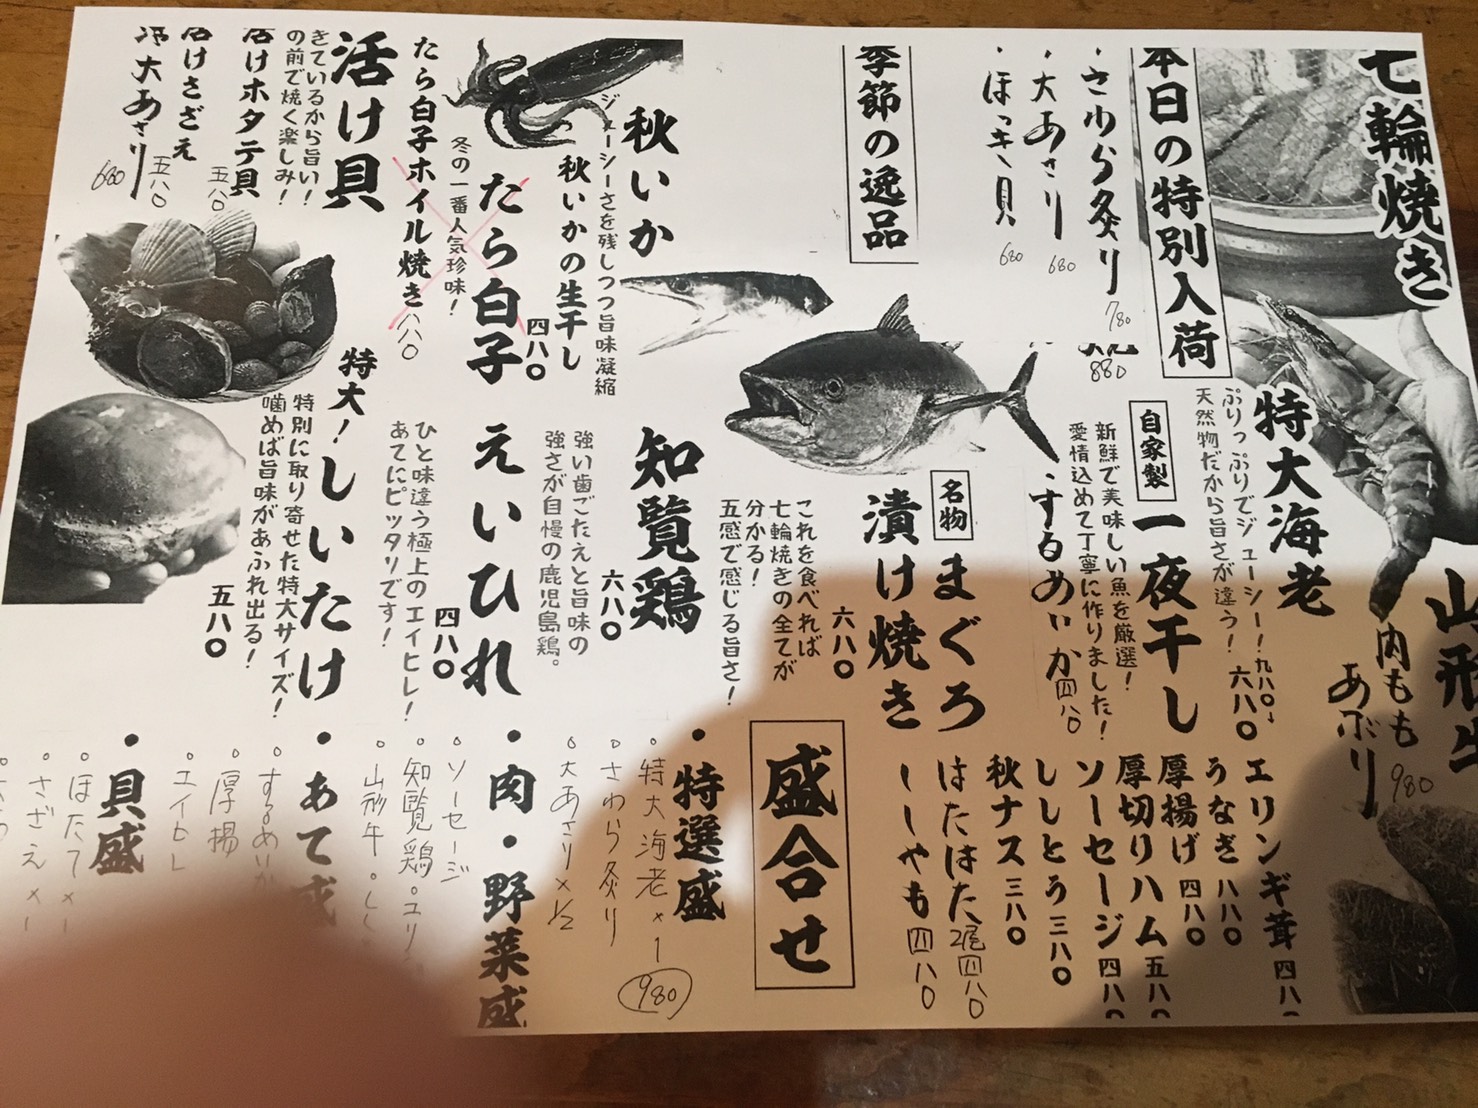 七輪焼き
本日の特別入荷
・さわら炙り 780
・大あさり 680
・ほっき貝 680
880
季節の逸品
秋いか
ジューシーさを残しつつ旨味凝縮
秋いかの生干し
四八〇
たら白子
冬の一番人気珍味!
たら白子ホイル焼き 八八〇
活け貝
きているから旨い!
の前で焼く楽しみ!
活けホタテ貝 五八〇
活けさざえ 五八〇
大あさり 680
特大海老
ぷりっぷりでジューシー!九八〇→
天然物だから旨さが違う! 六八〇
自家製
一夜干し
新鮮で美味しい魚を厳選!
愛情込めて丁寧に作りました!
・するめいか 四八〇
名物
まぐろ
漬け焼き
六八〇
これを食べれば
七輪焼きの全てが
分かる!
五感で感じる旨さ!
知覧鶏
六八〇
強い歯ごたえと旨味の
強さが自慢の鹿児島鶏。
えいひれ
四八〇
ひと味違う極上のエイヒレ!
あてにピッタリです!
特大!しいたけ
特別に取り寄せた特大サイズ!
噛めば旨味があふれ出る!
五八〇
山形牛
内もも
あぶり
980
エリンギ茸 四八
うなぎ 八八〇
厚揚げ 四八〇
厚切りハム 五八〇
ソーセージ 四八〇
ししとう 三八〇
秋ナス 三八〇
はたはた 2尾 四八〇
ししゃも 四八〇
盛合せ
・特選盛
・特大海老×1
・さわら炙り
・大あさり×1/2
980
・肉・野菜盛
・ソーセージ
・知覧鶏 ・エリン
・山形牛 ・しし
・あて盛
・するめいか
・厚揚
・エイヒレ
・貝盛
・ほたて×1
・さざえ×1